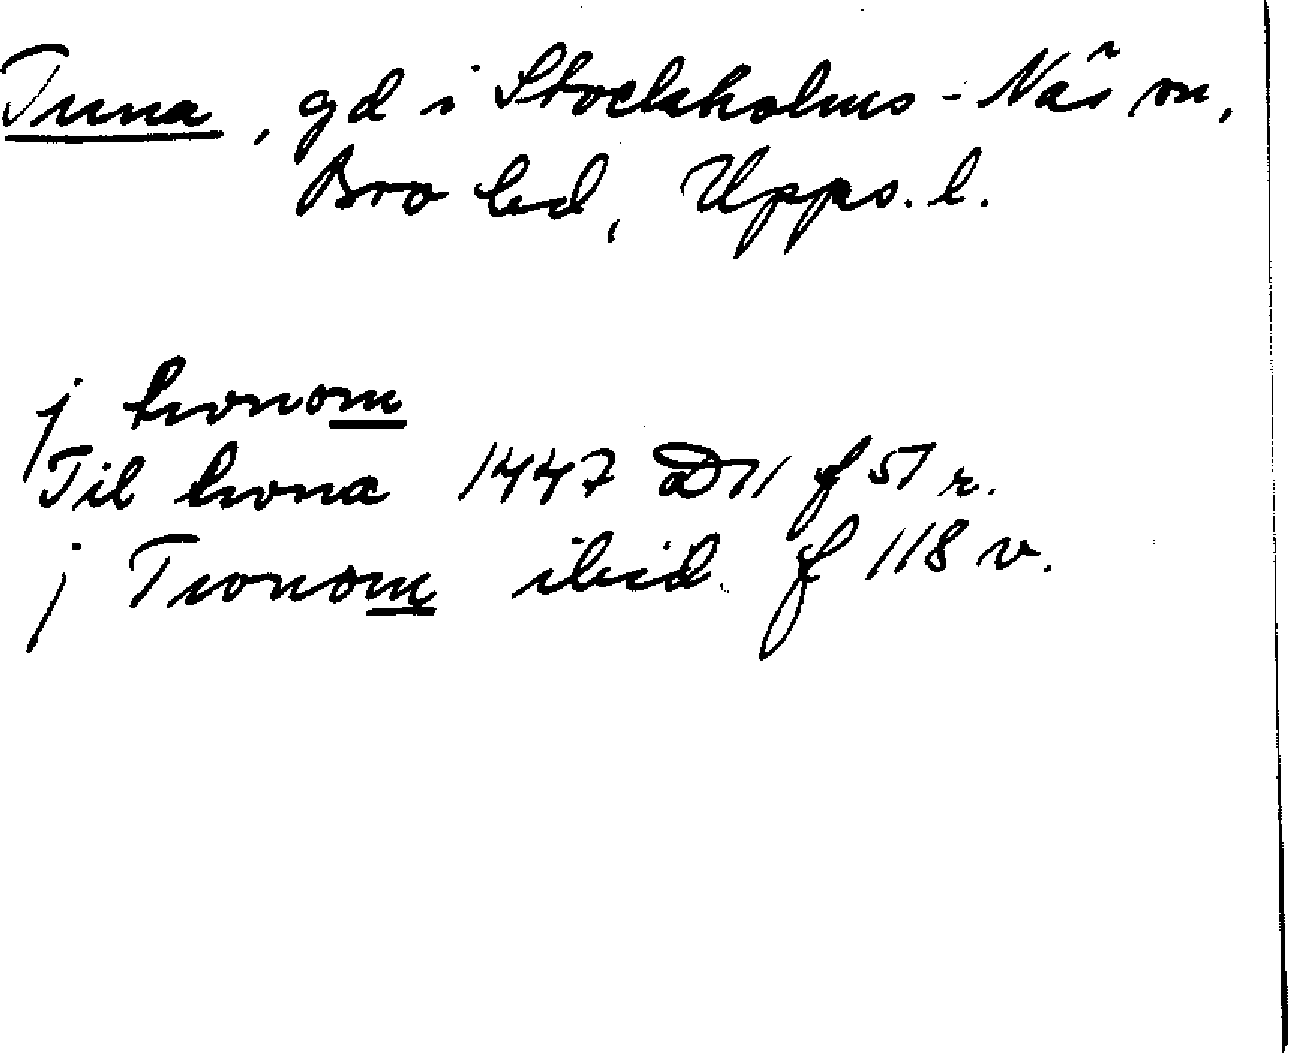 Tuna, gd i Stockholms-Näs sn,
Bro hd, Upps. l.
j twnom
Til twna 1447 D11 f 51 r.
j Twnom ibid. f 118 v.